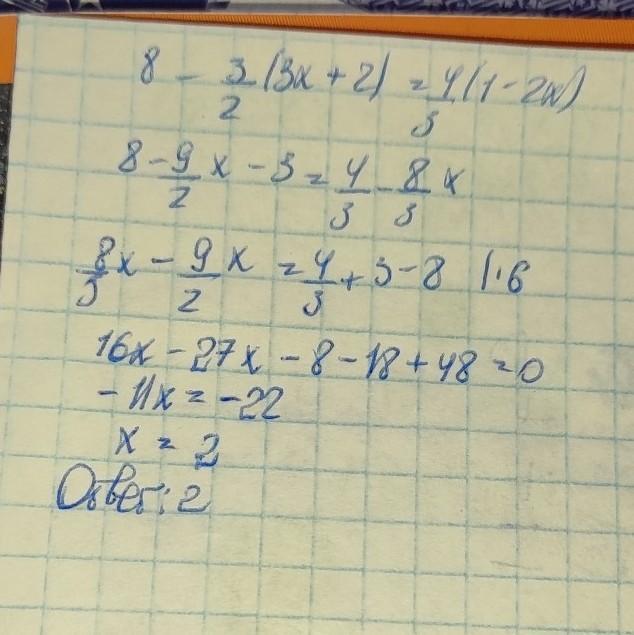 8 - 3/2 (3x + 2) = 4/3 (1 - 2x)
8 - 9/2 x - 3 = 4/3 - 8/3 x
8/3 x - 9/2 x = 4/3 + 3 - 8 |·6
16x - 27x - 8 - 18 + 48 = 0
- 11x = -22
x = 2
Ответ: 2